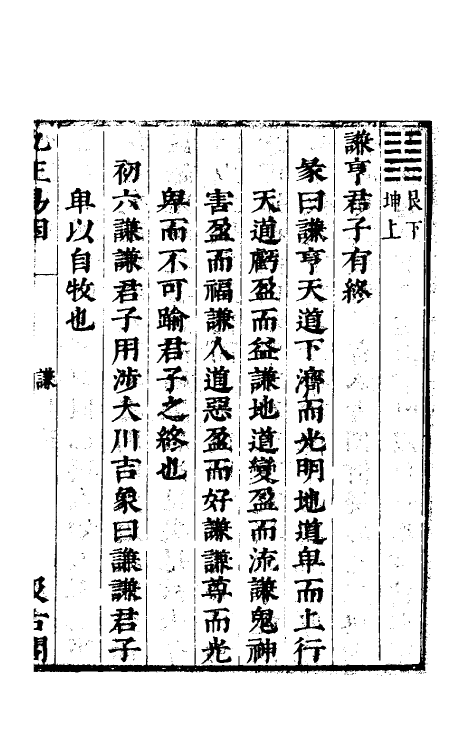 艮下
坤上
謙亨君子有終
彖曰謙亨天道下濟而光明地道卑而上行
天道虧盈而益謙地道變盈而流謙鬼神
害盈而福謙人道惡盈而好謙謙尊而光
卑而不可踰君子之終也
初六謙謙君子用涉大川吉象曰謙謙君子
卑以自牧也
九正易因
謙
汲古閣